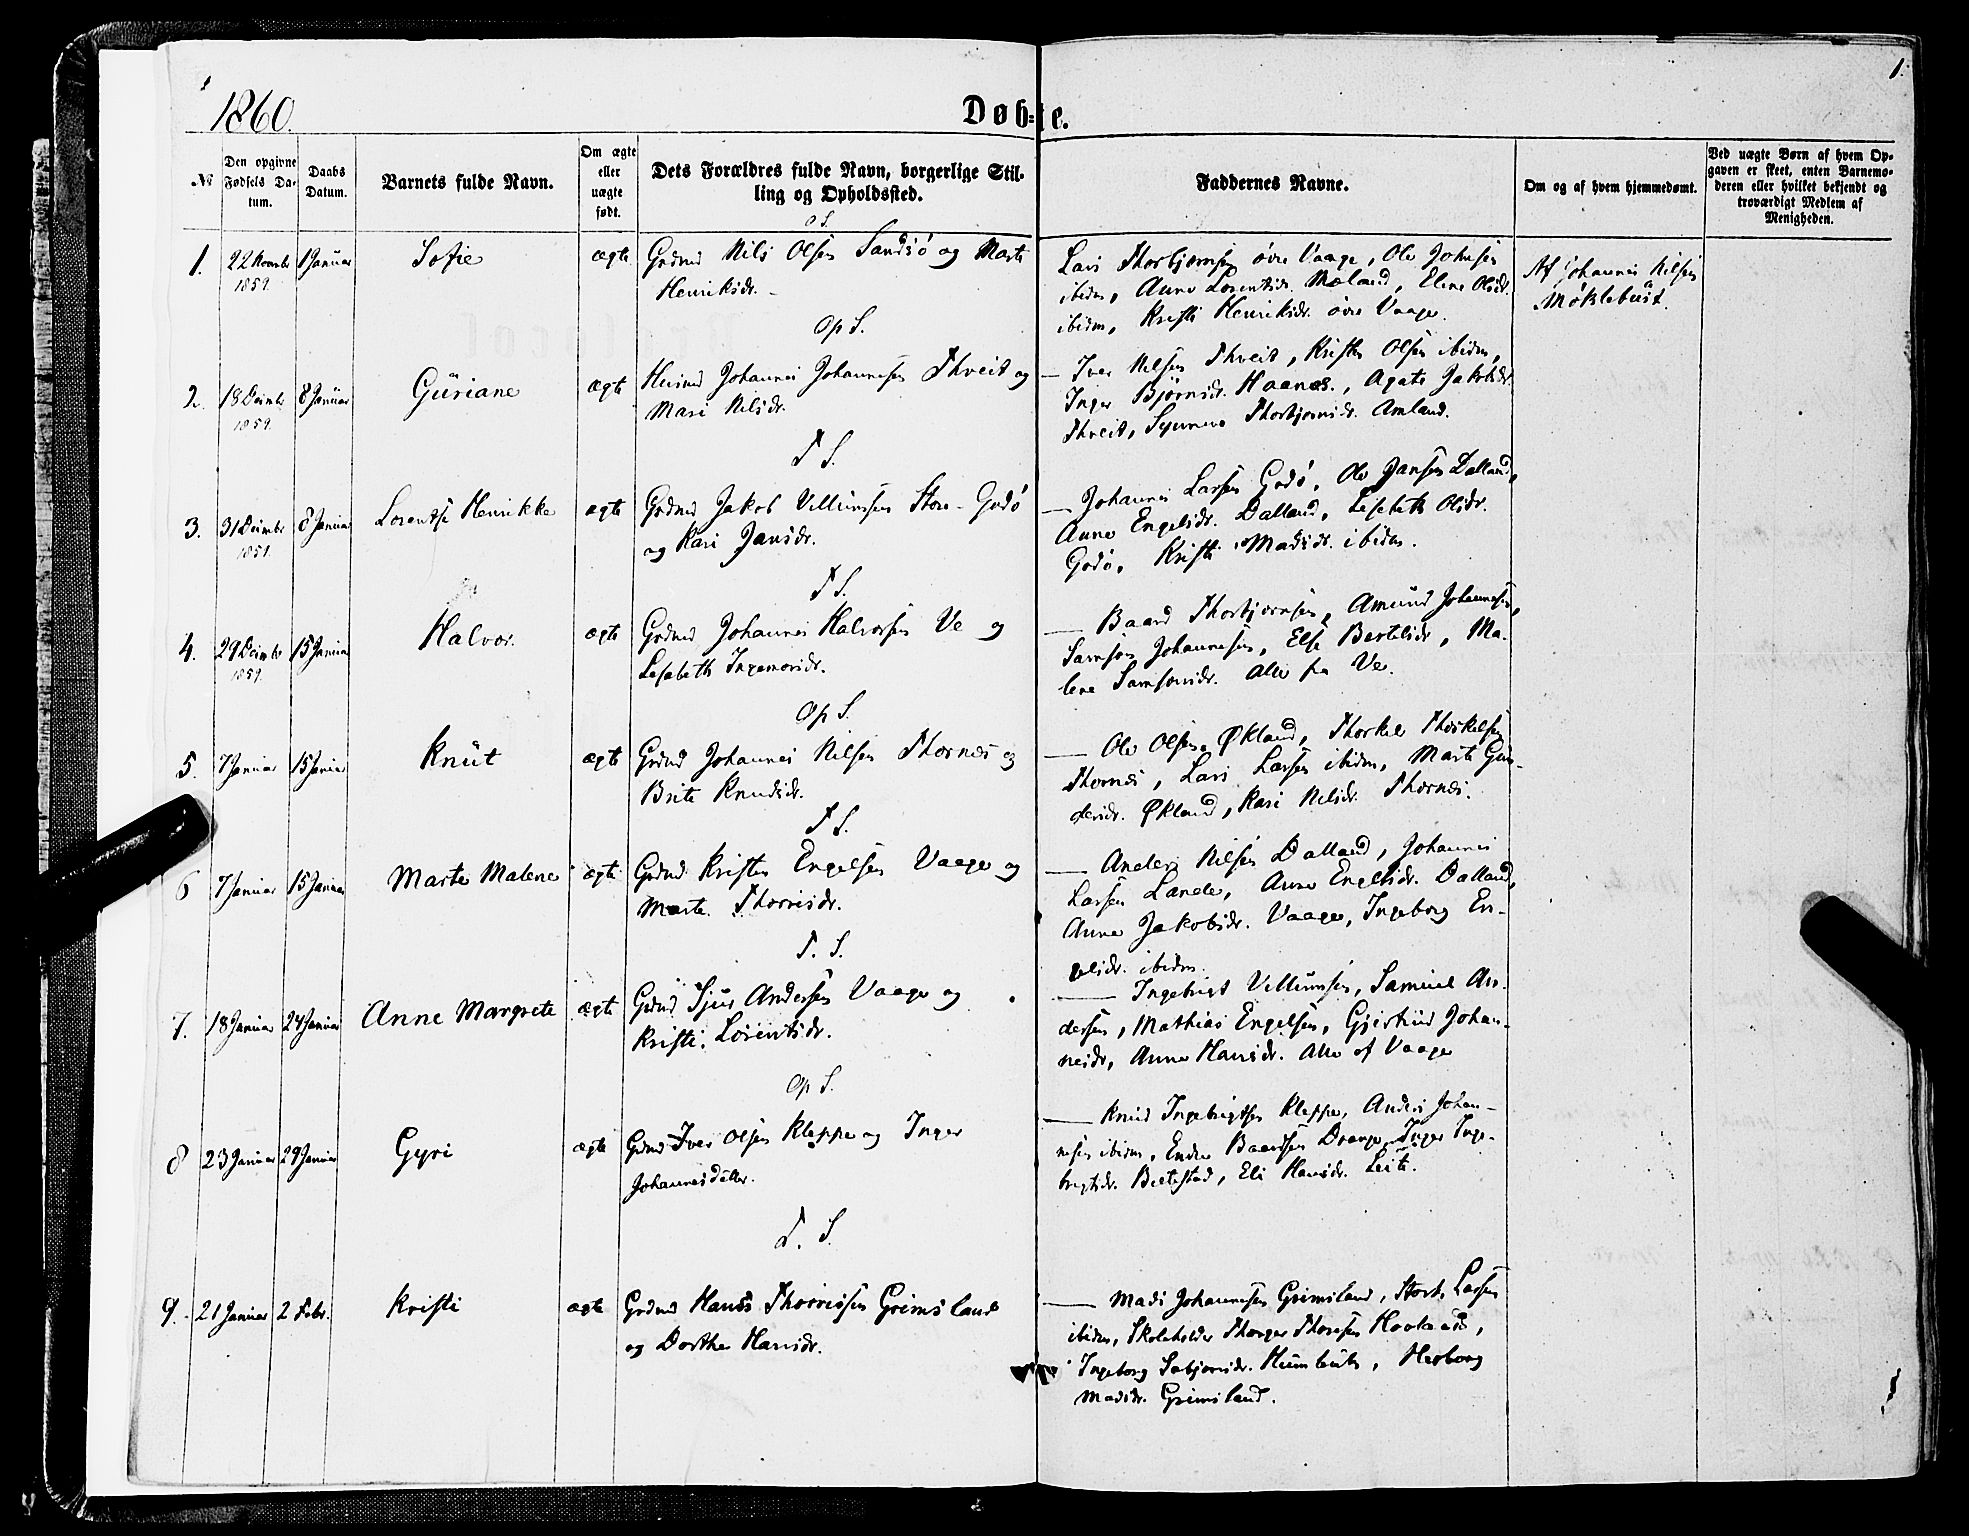 1860.
Døbte.
1.
№
Den opgivne Fødsels Datum.
Daabs Datum.
Barnets fulde Navn.
Om ægte eller uægte født.
Dets Forældres fulde Navn, borgerlige Stilling og Opholdssted.
Faddernes Navne.
Om og af hvem hjemmedømt.
Ved uægte Børn af hvem Opgaven er skeet, enten Barnemoderen eller hvilket bekjendt og troværdigt Medlem af Menigheden.
1. 22 Novmbr 1859. 1 Januar Sofie ægte
Grdmd Nils Olsen Sandsö og Marte
Henriksdr.
Lars Thorbjørnsen øvre Vaage, Ole Johnsen
ibidm, Anne Lorentsdr. Mæland, Elene Olsdr.
ibidm, Kristi Henriksdr. øvre Vaage.
Af Johannes Nilsen
Møklebust.
Op S.
2. 18 Decmbr 1859. 8 Januar Guriane ægte
Husmd Johannes Johannesen Thveit og
Mari Nilsdr.
— Iver Nilsen Thveit, Kristen Olsen ibidm,
Inger Bjørnsdr. Haanes, Agate Jakobsdr.
Thveit, Synneve Thorbjørnsdr. Amland.
T S.
3. 31 Decmbr 1859. 8 Januar Lorentse Henrikke ægte
Grdmd Jakob Villumsen Store-Godö
og Kari Jansdr.
— Johannes Larsen Godö, Ole Jansen Dalland,
Anne Engelsdr. Dalland, Lisebeth Olsdr.
Godö, Kristi Madsdr. ibidm.
T S.
4. 29 Decmbr 1859. 15 Januar Halvor. ægte
Grdmd Johannes Halvorsen Ve og
Lisabeth Ingemorsdr.
— Baard Thorbjørnsen, Amund Johannesen,
Samson Johannesen, Else Bertelsdr, Ma-
lene Samsonsdr. Alle fra Ve.
Op S.
5. 7 Januar 15 Januar Knut ægte
Grdmd Johannes Nilsen Thornæs og
Brite Knudsdr.
— Ole Olsen Økland, Thorkel Thorkelsen
Thornæs, Lars Larsen ibidm, Marte Gun-
dersdr. Økland, Kari Nilsdr. Thornæs.
T S.
6 7 Januar 15 Januar Marte Malene ægte
Grdmd Kristen Engelsen Vaage og
Marte Thorrisdr.
— Anders Nilsen Dalland, Johannes
Larsen Lande, Anne Engelsdr. Dalland,
Anne Jakobsdr. Vaage, Ingeborg En-
gelsdr. ibidm.
T. S.
7. 18 Januar 24 Januar Anne Margrete ægte
Grdmd Sjur Andersen Vaage og
Kristi Lorentsdr.
— Ingebrigt Villumsen, Samuel An-
dersen, Mathias Engelsen, Gjertrud Johan-
nesdr, Anne Hansdr. Alle af Vaage
Op S.
8 23 Januar 29 Januar Gyri ægte
Grdmd Iver Olsen Kleppe og Inger
Johannesdatter.
— Knud Ingebrigtsen Kleppe, Anders Johan-
nesen ibidm, Endre Baardsen Drange, Inger Inge-
brigtsdr. Beltestad, Eli Hansdr. Leite.
T. S.
9. 21 Januar 2 Febr. Kristi ægte
Grdmd Hans Thorrissen Grimsland
og Dorthe Hansdr.
— Mads Johannesen Grimsland, Larsen
ibidm, Skoleholder Thorger Thoresen Hovland,
Ingeborg Sabjørnsdr. Humlevik, Herborg
Madsdr. Grimsland.